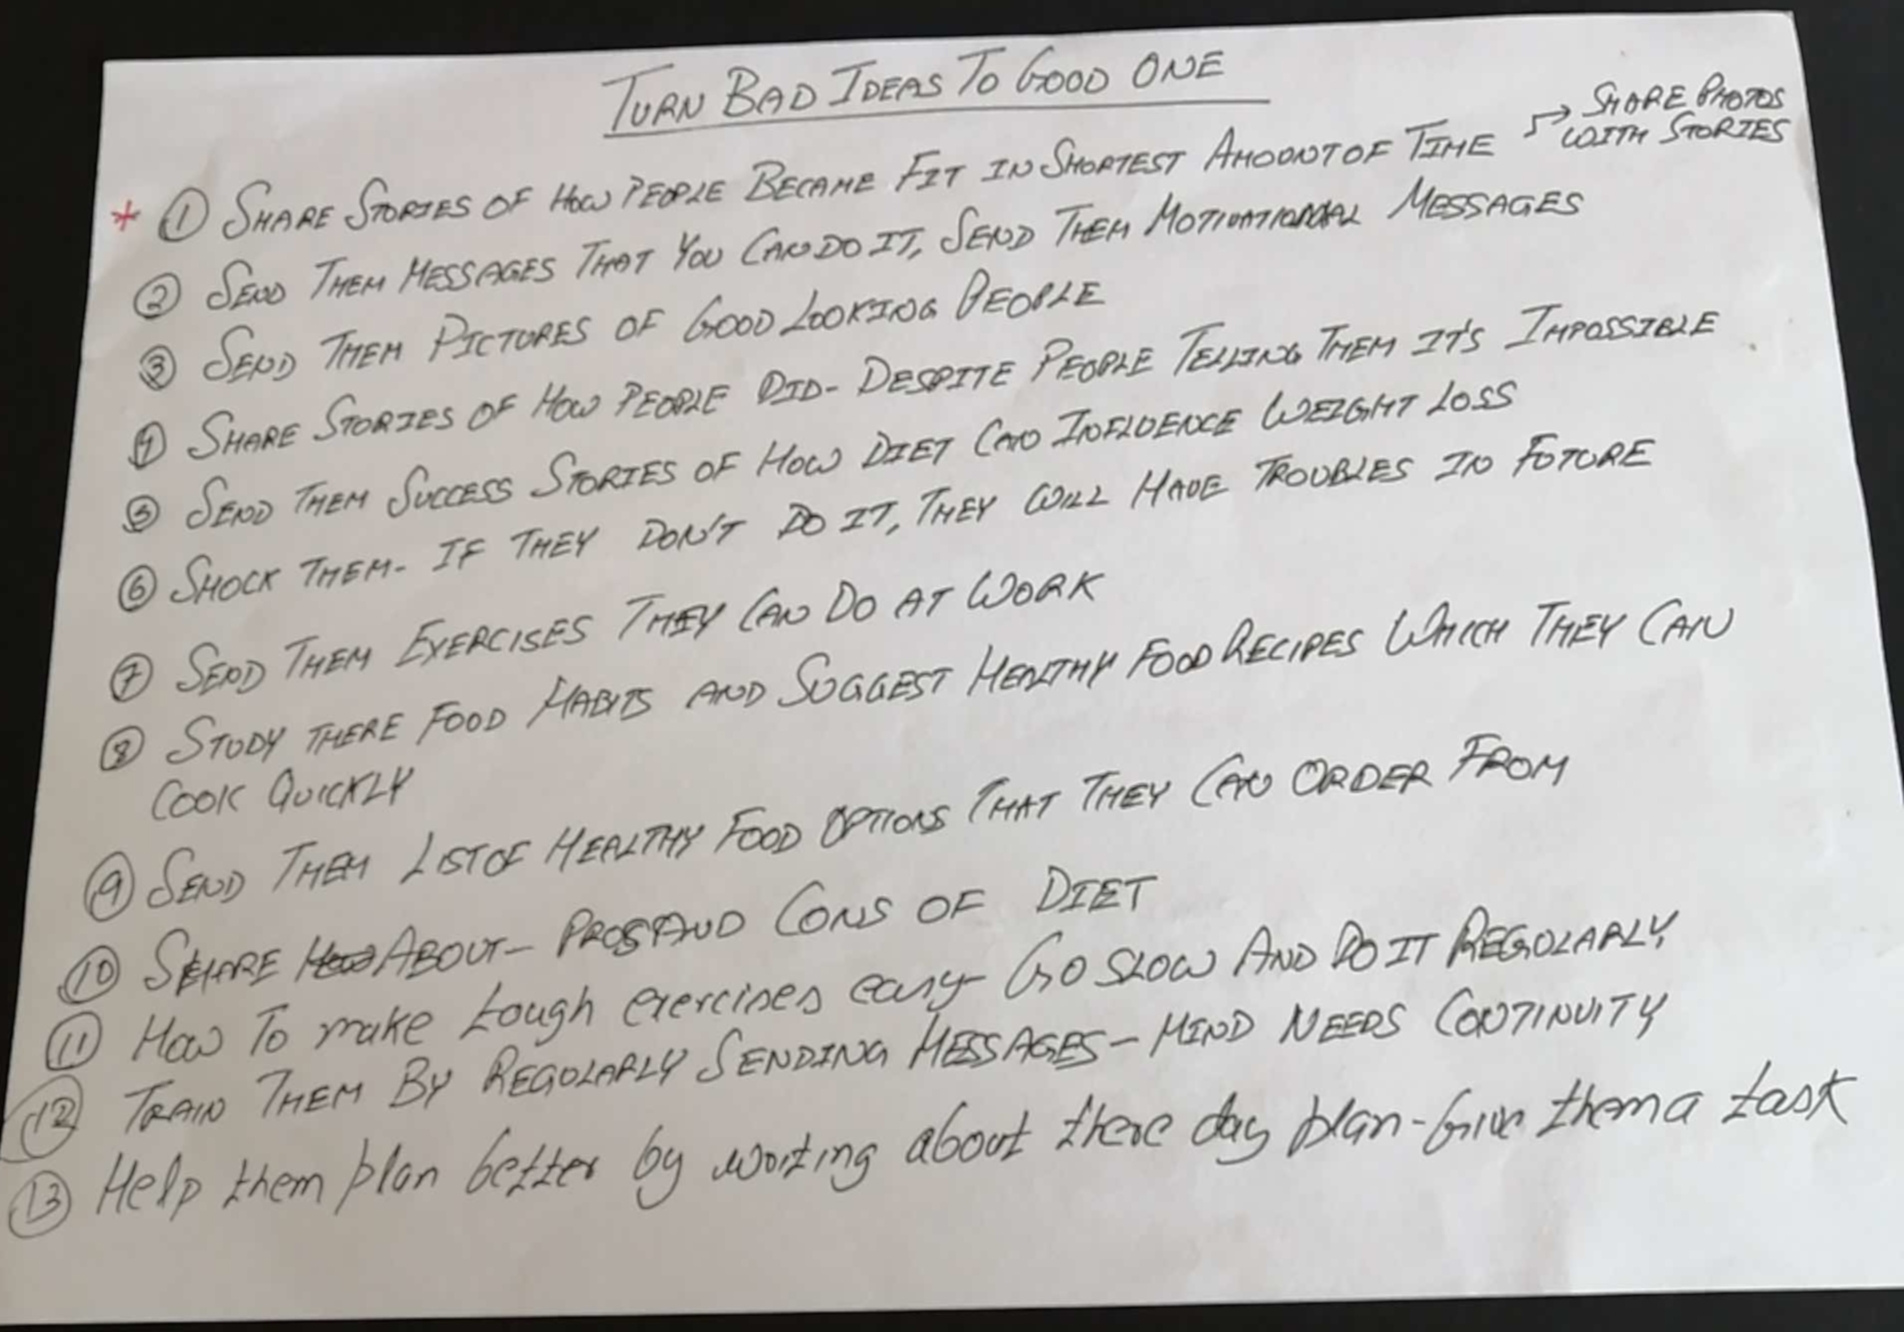 TURN BAD IDEAS TO GOOD ONE
* 1 SHARE STORIES OF HOW PEOPLE BECAME FIT IN SHORTEST AMOUNT OF TIME → SHARE PHOTOS
WITH STORIES
2 SEND THEM MESSAGES THAT YOU CAN DO IT, SEND THEM MOTIVATIONAL MESSAGES
3 SEND THEM PICTURES OF GOOD LOOKING PEOPLE
4 SHARE STORIES OF HOW PEOPLE DID- DESPITE PEOPLE TELLING THEM IT'S IMPOSSIBLE
5 SEND THEM SUCCESS STORIES OF HOW DIET CAN INFLUENCE WEIGHT LOSS
6 SHOCK THEM- IF THEY DON'T DO IT, THEY WILL HAVE TROUBLES IN FUTURE
7 SEND THEM EXERCISES THEY CAN DO AT WORK
8 STUDY THERE FOOD HABITS AND SUGGEST HEALTHY FOOD RECIPES WHICH THEY CAN
COOK QUICKLY
9 SEND THEM LIST OF HEALTHY FOOD OPTIONS THAT THEY CAN ORDER FROM
10 SHARE ABOUT- PROS AND CONS OF DIET
11 HOW TO make tough exercises easy- GO SLOW AND DO IT REGULARLY
12 TRAIN THEM BY REGULARLY SENDING MESSAGES- MIND NEEDS CONTINUITY
13 Help them plan better by writing about there day plan- Give them a task